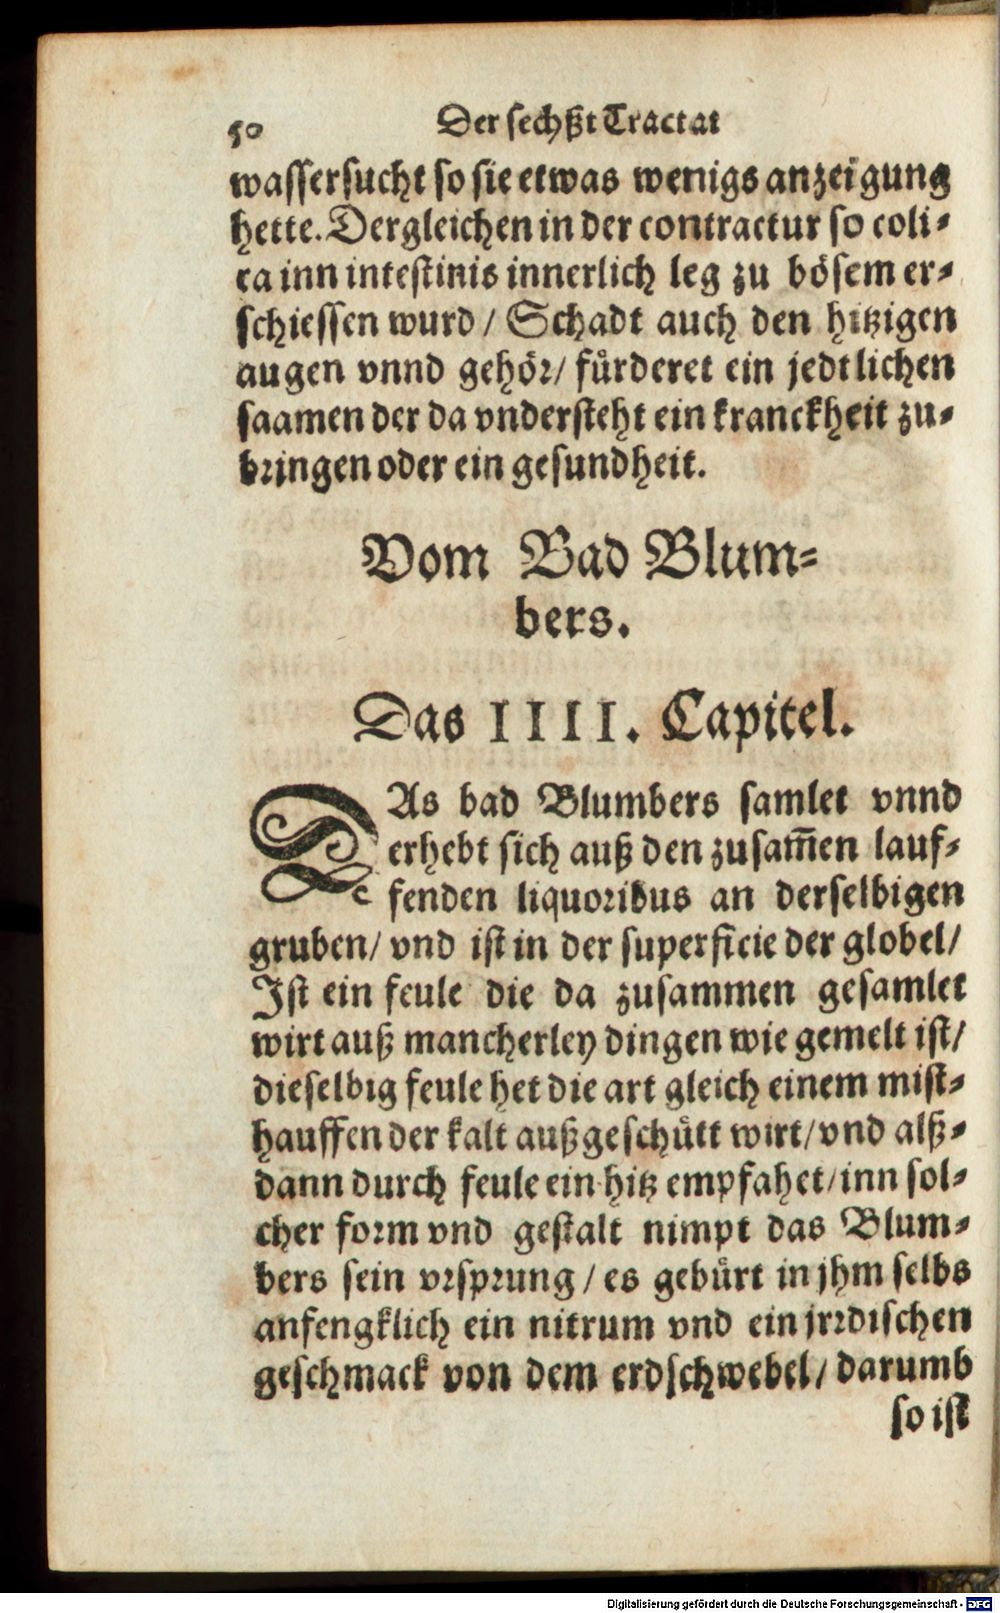 50 Der sechßt Tractat
wassersucht so sie etwas wenigs anzeigung
hette. Dergleichen in der contractur so coli-
ca inn intestinis innerlich leg zu bösem er-
schiessen wurd / Schadt auch den hitzigen
augen vnnd gehör / fürderet ein jedtlichen
saamen der da vndersteht ein kranckheit zu-
bringen oder ein gesundheit.
Vom Bad Blum-
bers.
Das IIII. Capitel.
DAs bad Blumbers samlet vnnd
erhebt sich auß den zusam̄en lauf-
fenden liquoribus an derselbigen
gruben / vnd ist in der superficie der globel /
Ist ein feule die da zusammen gesamlet
wirt auß mancherley dingen wie gemelt ist /
dieselbig feule het die art gleich einem mist-
hauffen der kalt außgeschütt wirt / vnd alß-
dann durch feule ein hitz empfahet / inn sol-
cher form vnd gestalt nimpt das Blum-
bers sein vrsprung / es gebürt in jhm selbs
anfengklich ein nitrum vnd ein jrrdischen
geschmack von dem erdschwebel / darumb
so ist
Digitalisierung gefördert durch die Deutsche Forschungsgemeinschaft - DFG